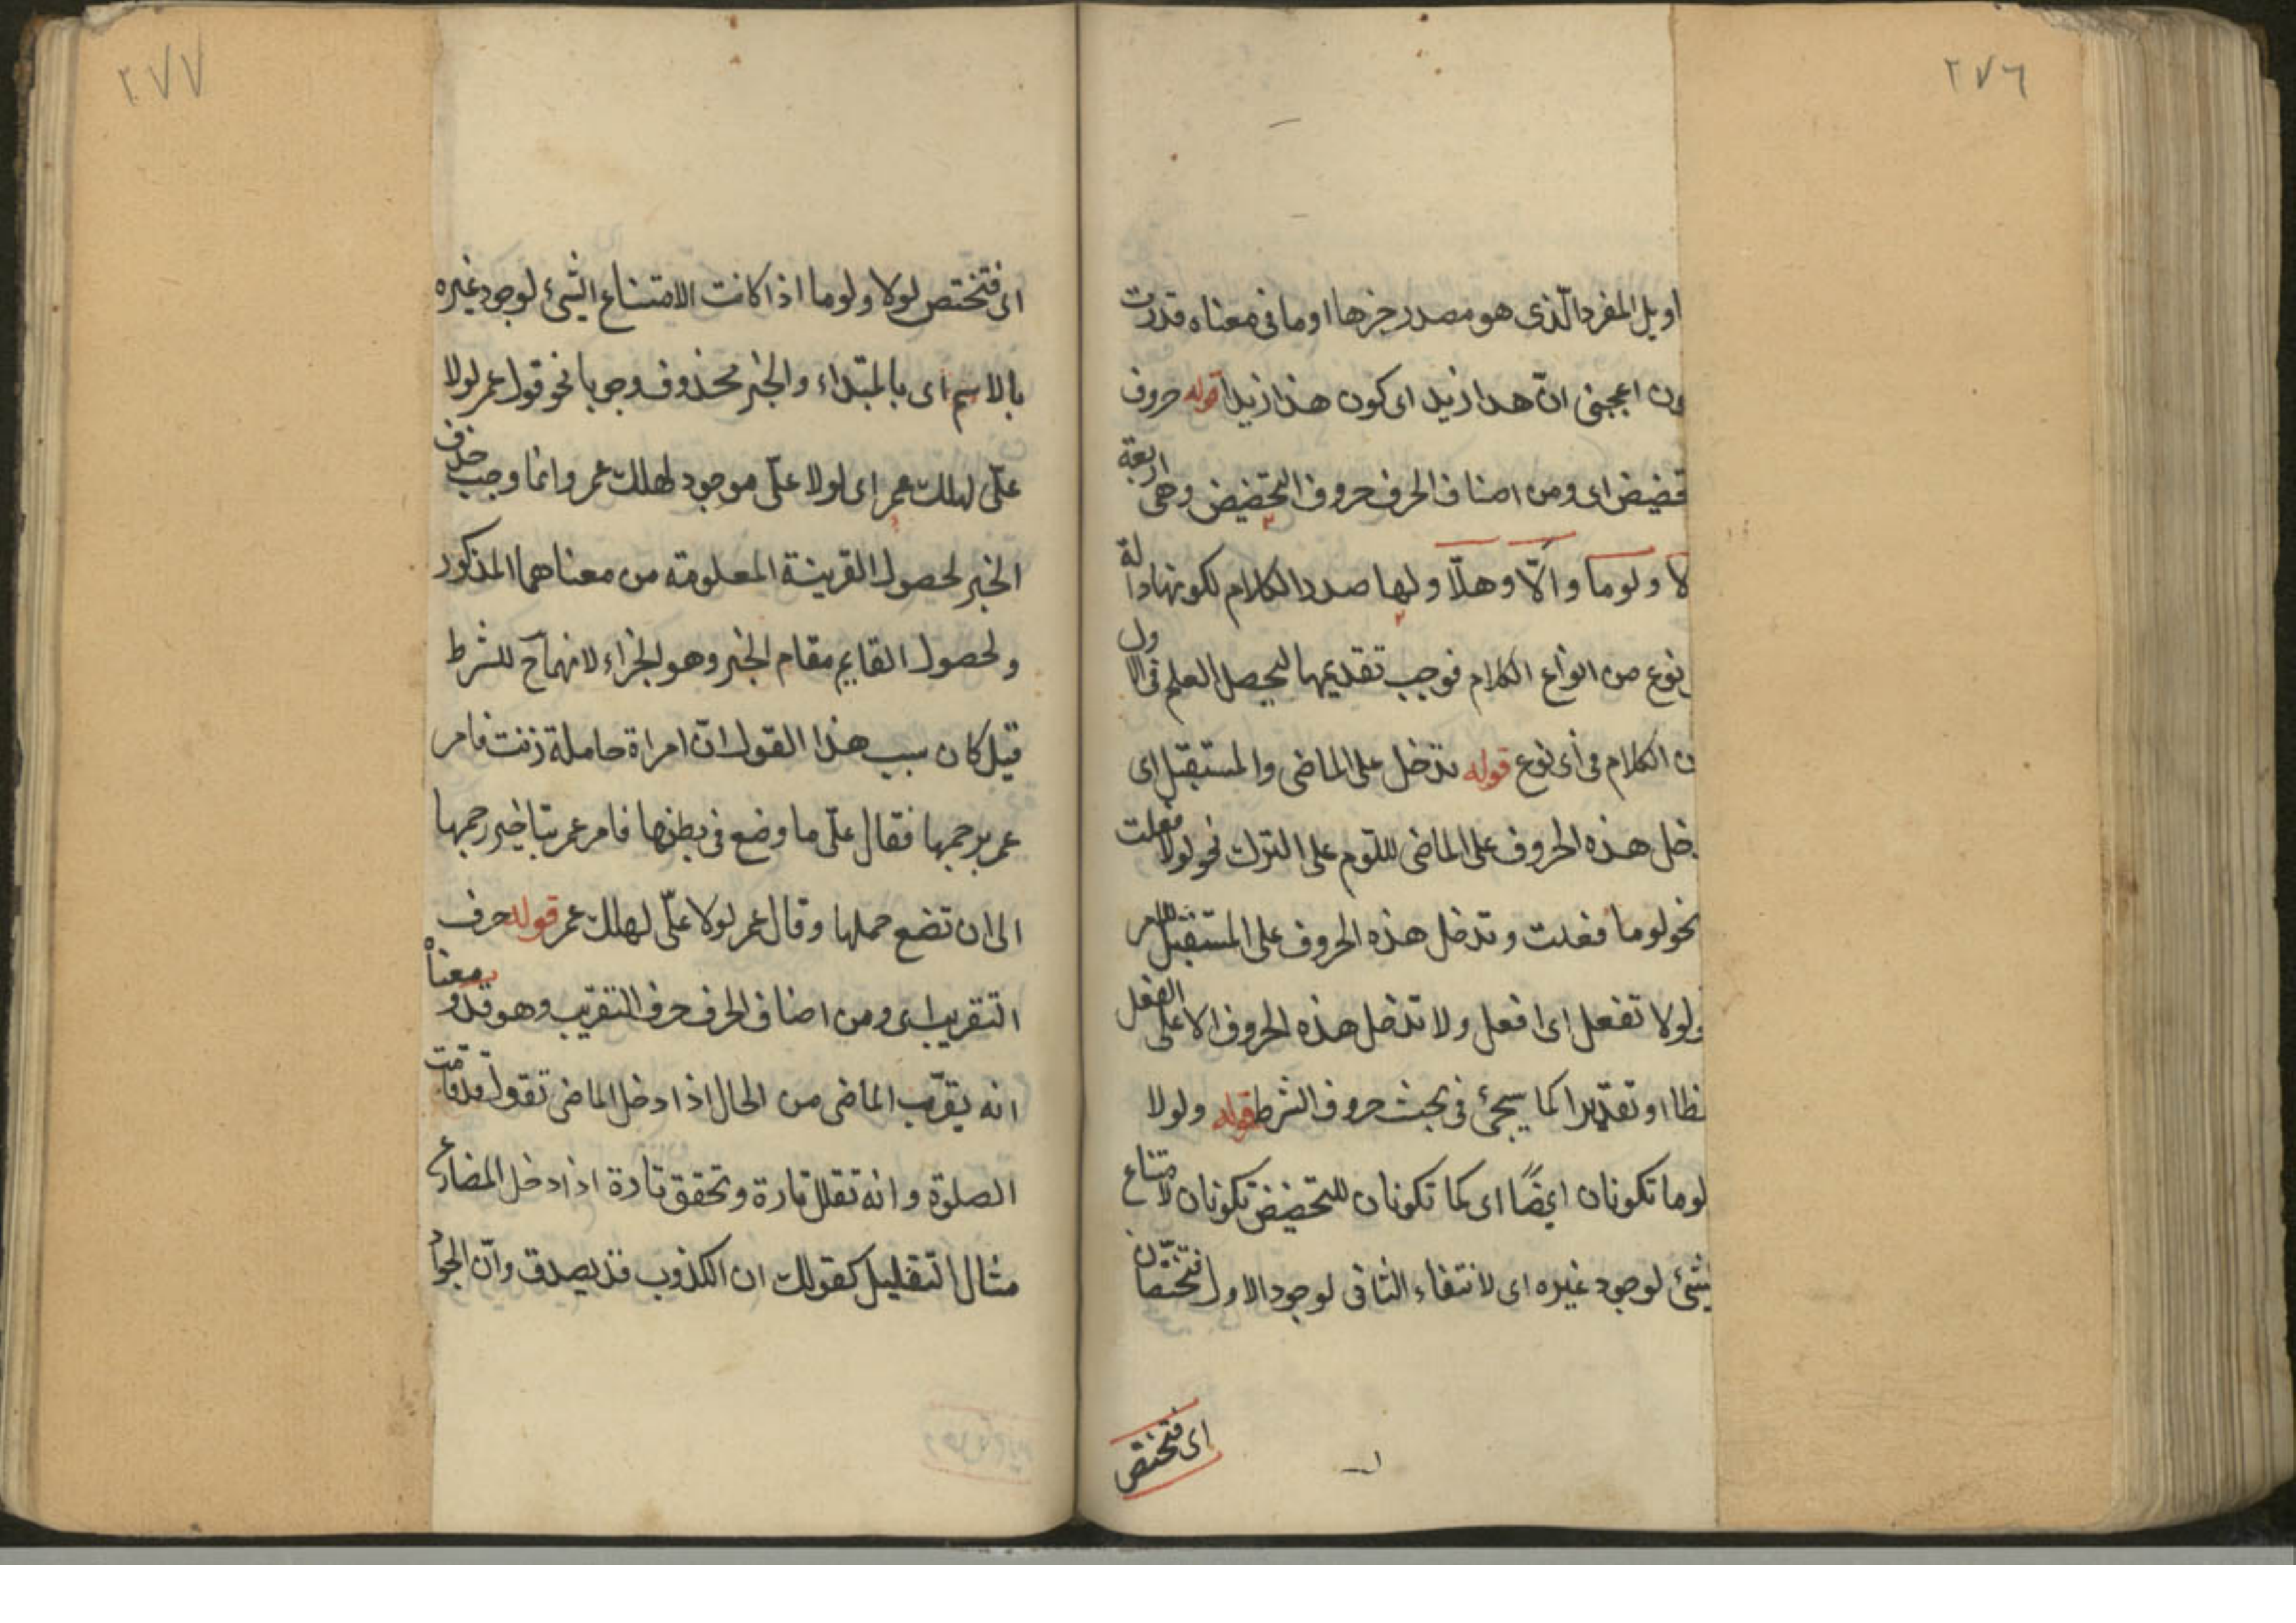 ٢٧٦
اويل المفرد الّذى هو مصدر خبرها او ما فى معناه قدرت
ون اعجبنى انّ هذا زيد اى كون هذا زيدا قوله حروف
تحضيض اى ومن اصناف الحرف حروف التحضيض وهى اربعة
لا ولوما والّا وهلّا ولها صدر الكلام لكونها دالة
نوع من انواع الكلام فوجب تقديمها ليحصل العلم فى الاول
ن الكلام فى أى نوع قوله تدخل على الماضى والمستقبل اى
خل هذه الحروف على الماضى للتوم على الترك نحو لولا فعلت
نحو لوما فعلت وتدخل هذه الحروف على المستقبل للامر
ولولا تفعل اى افعل ولا تدخل هذه الحروف الا على الفعل
فظا او تقديرا كما سيجئ فى بحث حروف الشرط قوله ولولا
لوما تكونان ايضًا اى كما تكونان للتحضيض تكونان لامتناع
شئ لوجود غيره اى لانتفاء الثانى لوجود الاول فتختصّان
اى فتختص
٢٧٧
اى فتختص لولا ولوما اذا كانت الامتناع الشئ لوجود غيره
بالاسم اى بالمبتداء والخبر محذوف وجوبا نحو قول عمر لولا
علىّ لهلك عمر اى لولا علىّ موجود لهلك عمر وانما وجب حذف
الخبر لحصول القرينة المعلومة من معناهما المذكور
ولحصول القايم مقام الخبر وهو الجزاء لانهما ح للشرط
قيل كان سبب هذا القول انّ امراة حاملة زنت فامر
عمر برجمها فقال علىّ ما وضع فى بطنها فامر عمر بتاخير رجمها
الى ان تضع حملها وقال عمر لولا علىّ لهلك عمر قوله حرف
التقريب اى ومن اصناف الحرف حرف التقريب وهو قد ومعناه
انه يقرّب الماضى من الحال اذا دخل الماضى تقول قد قامت
الصلوة وانه تقلل تارة وتحقق تارة اذا دخل المضارع
مثال التقليل كقولك ان الكذوب قد يصدق وانّ الجواد